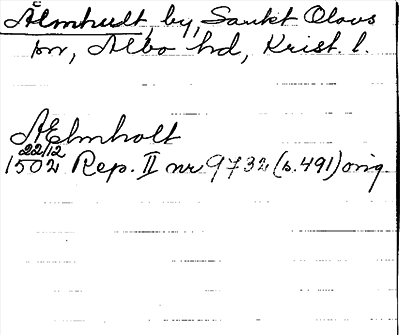 Älmhult, by, Sankt Olovs
sn, Albo hd, Krist. l.
AElmholt
22/12
1502 Rep. II nr 9732 (s. 491) orig